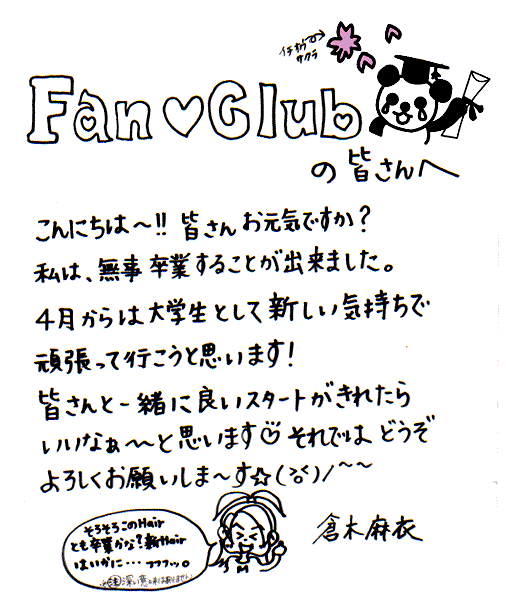 イチオウ
サクラ
Fan♡Club
の皆さんへ
こんにちは〜!! 皆さんお元気ですか?
私は、無事卒業することが出来ました。
4月からは大学生として新しい気持ちで
頑張って行こうと思います!
皆さんと一緒に良いスタートがきれたら
いいなぁ〜〜と思います それでは どうぞ
よろしくお願いしま〜す☆(>o<)/~~
そろそろこのHair
とも卒業かな?新Hair
はいかに…フフフッ。
深い意味はありません
倉木麻衣